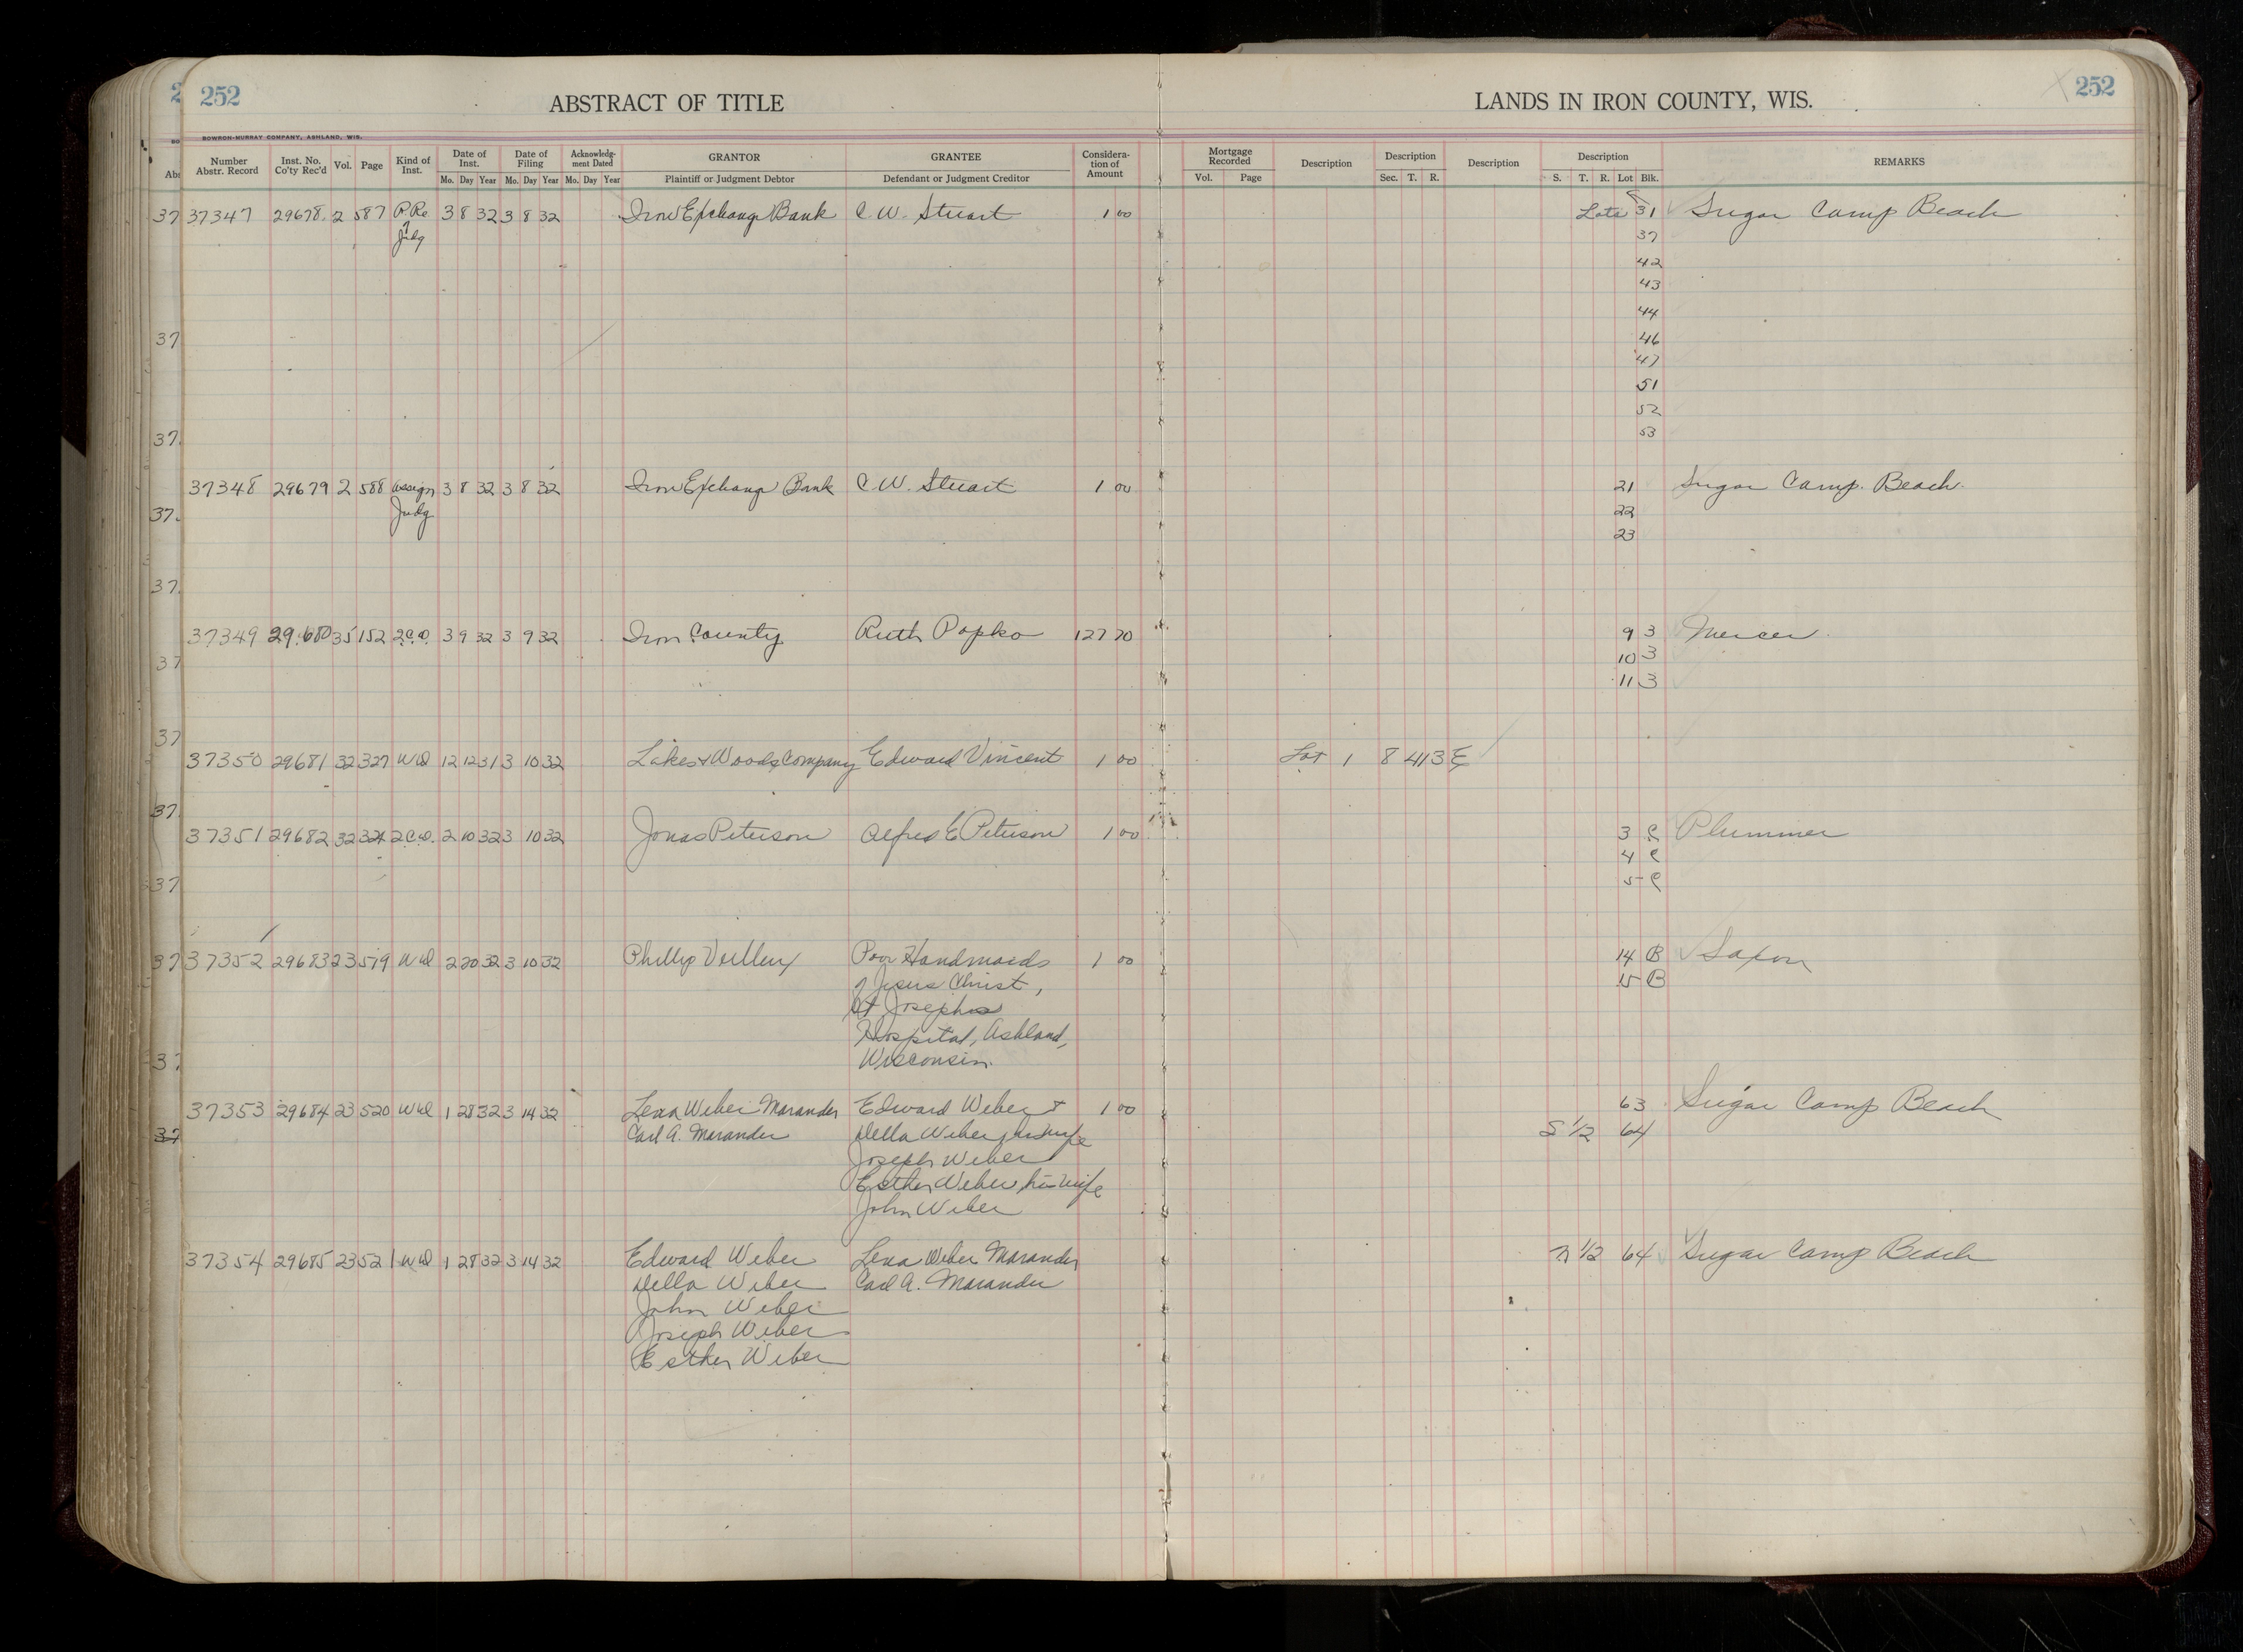 252 ABSTRACT OF TITLE LANDS IN IRON COUNTY, WIS. 252
BOWRON-MURRAY COMPANY, ASHLAND, WIS.
Number Abstr. Record Inst. No. Co'ty Rec'd Vol. Page Kind of Inst. Date of Inst. Date of Filing Acknowledgment Dated GRANTOR GRANTEE Consideration of Amount Mortgage Recorded Description Description Description Description REMARKS
Mo. Day Year Mo. Day Year Mo. Day Year Plaintiff or Judgment Debtor Defendant or Judgment Creditor Vol. Page Sec. T. R. S. T. R. Lot Blk.
37347 29678 2 587 P. Re 3 8 32 3 8 32 Iron Exchange Bank C. W. Stuart 1 00 Lots 31 Sugar Camp Beach
of
Judg
37
42
43
44
46
47
51
52
53
37348 29679 2 588 Assign 3 8 32 3 8 32 Iron Exchange Bank C. W. Stuart 1 00 21 Sugar Camp Beach
Judg 22
23
37349 29680 35 152 2CD 3 9 32 3 9 32 Iron County Ruth Popko 127 70 9 3 Mercer
10 3
11 3
37350 29681 32 327 WD 12 12 31 3 10 32 Lakes & Woods Company Edward Vincent 1 00 Lot 1 8 41 3 E
37351 29682 32 324 2CD. 2 10 32 3 10 32 Jonas Peterson Alfred E Peterson 1 00 3 C Plummer
4 C
5 C
37352 29683 23 519 WD 2 20 32 3 10 32 Phillip Veilleux Poor Handmaids 1 00 14 B Saxon
of Jesus Christ, 15 B
St Josephs
Hospital, Ashland,
Wisconsin.
37353 29684 23 520 WD 1 28 32 3 14 32 Lena Weber Marander Edward Weber & 1 00 63 Sugar Camp Beach
Carl A. Marander Della Weber, his wife S 1/2 64
Joseph Weber
Esther Weber, his wife
John Weber
37354 29685 23 521 WD 1 28 32 3 14 32 Edward Weber Lena Weber Marander N 1/2 64 Sugar Camp Beach
Della Weber Carl A. Marander
John Weber
Joseph Weber
Esther Weber